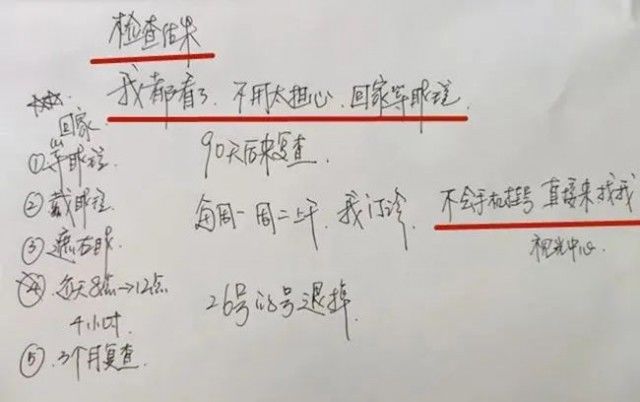 检查结果
我都看了.不用太担心.回家等眼镜.
回家
①等眼镜.
②戴眼镜.
③遮右眼.
④每天8点→12点
4小时.
⑤.3个月复查.
90天后来复查.
每周一周二上午.我门诊.不会手机挂号 直接来找我
视光中心.
26号的号退掉.